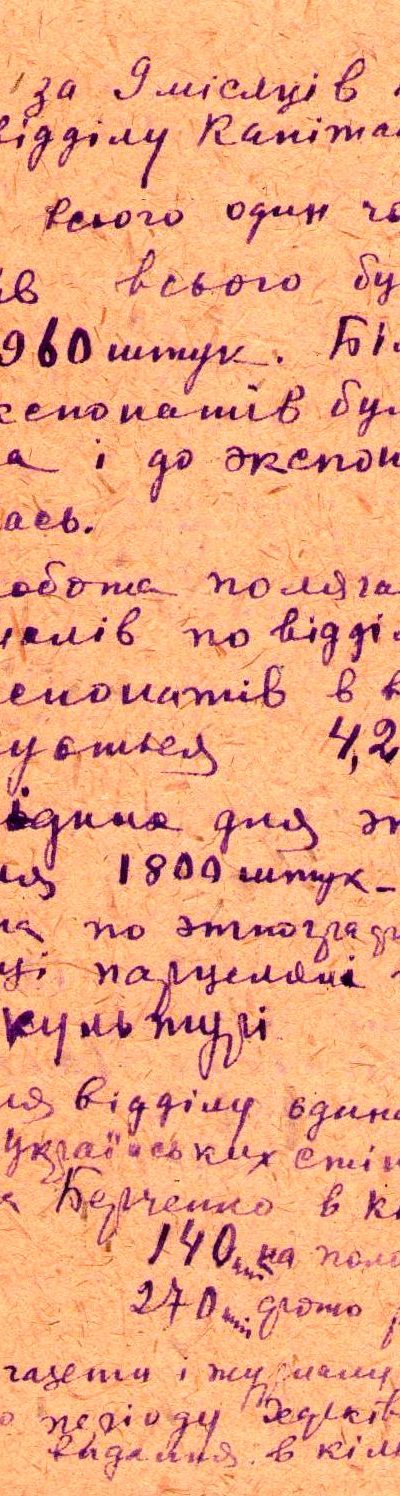 за 9 місяців
відділу Капіта
всього один чо
ів всього бу
960 штук. Біл
кспонатів бул
а і до экспон
ась.
обота поляга
иалів по відділ
спонатів в к
ується 4,2
ідних для эк
ня 1800 штук-
на по этнографі
ці парцеляні
культурі
ля відділу єдина
українських стін
а Берченко в кі
140 шт на поло
270 шт фото
газети і журнали
о періоду Харків
видання в кіль